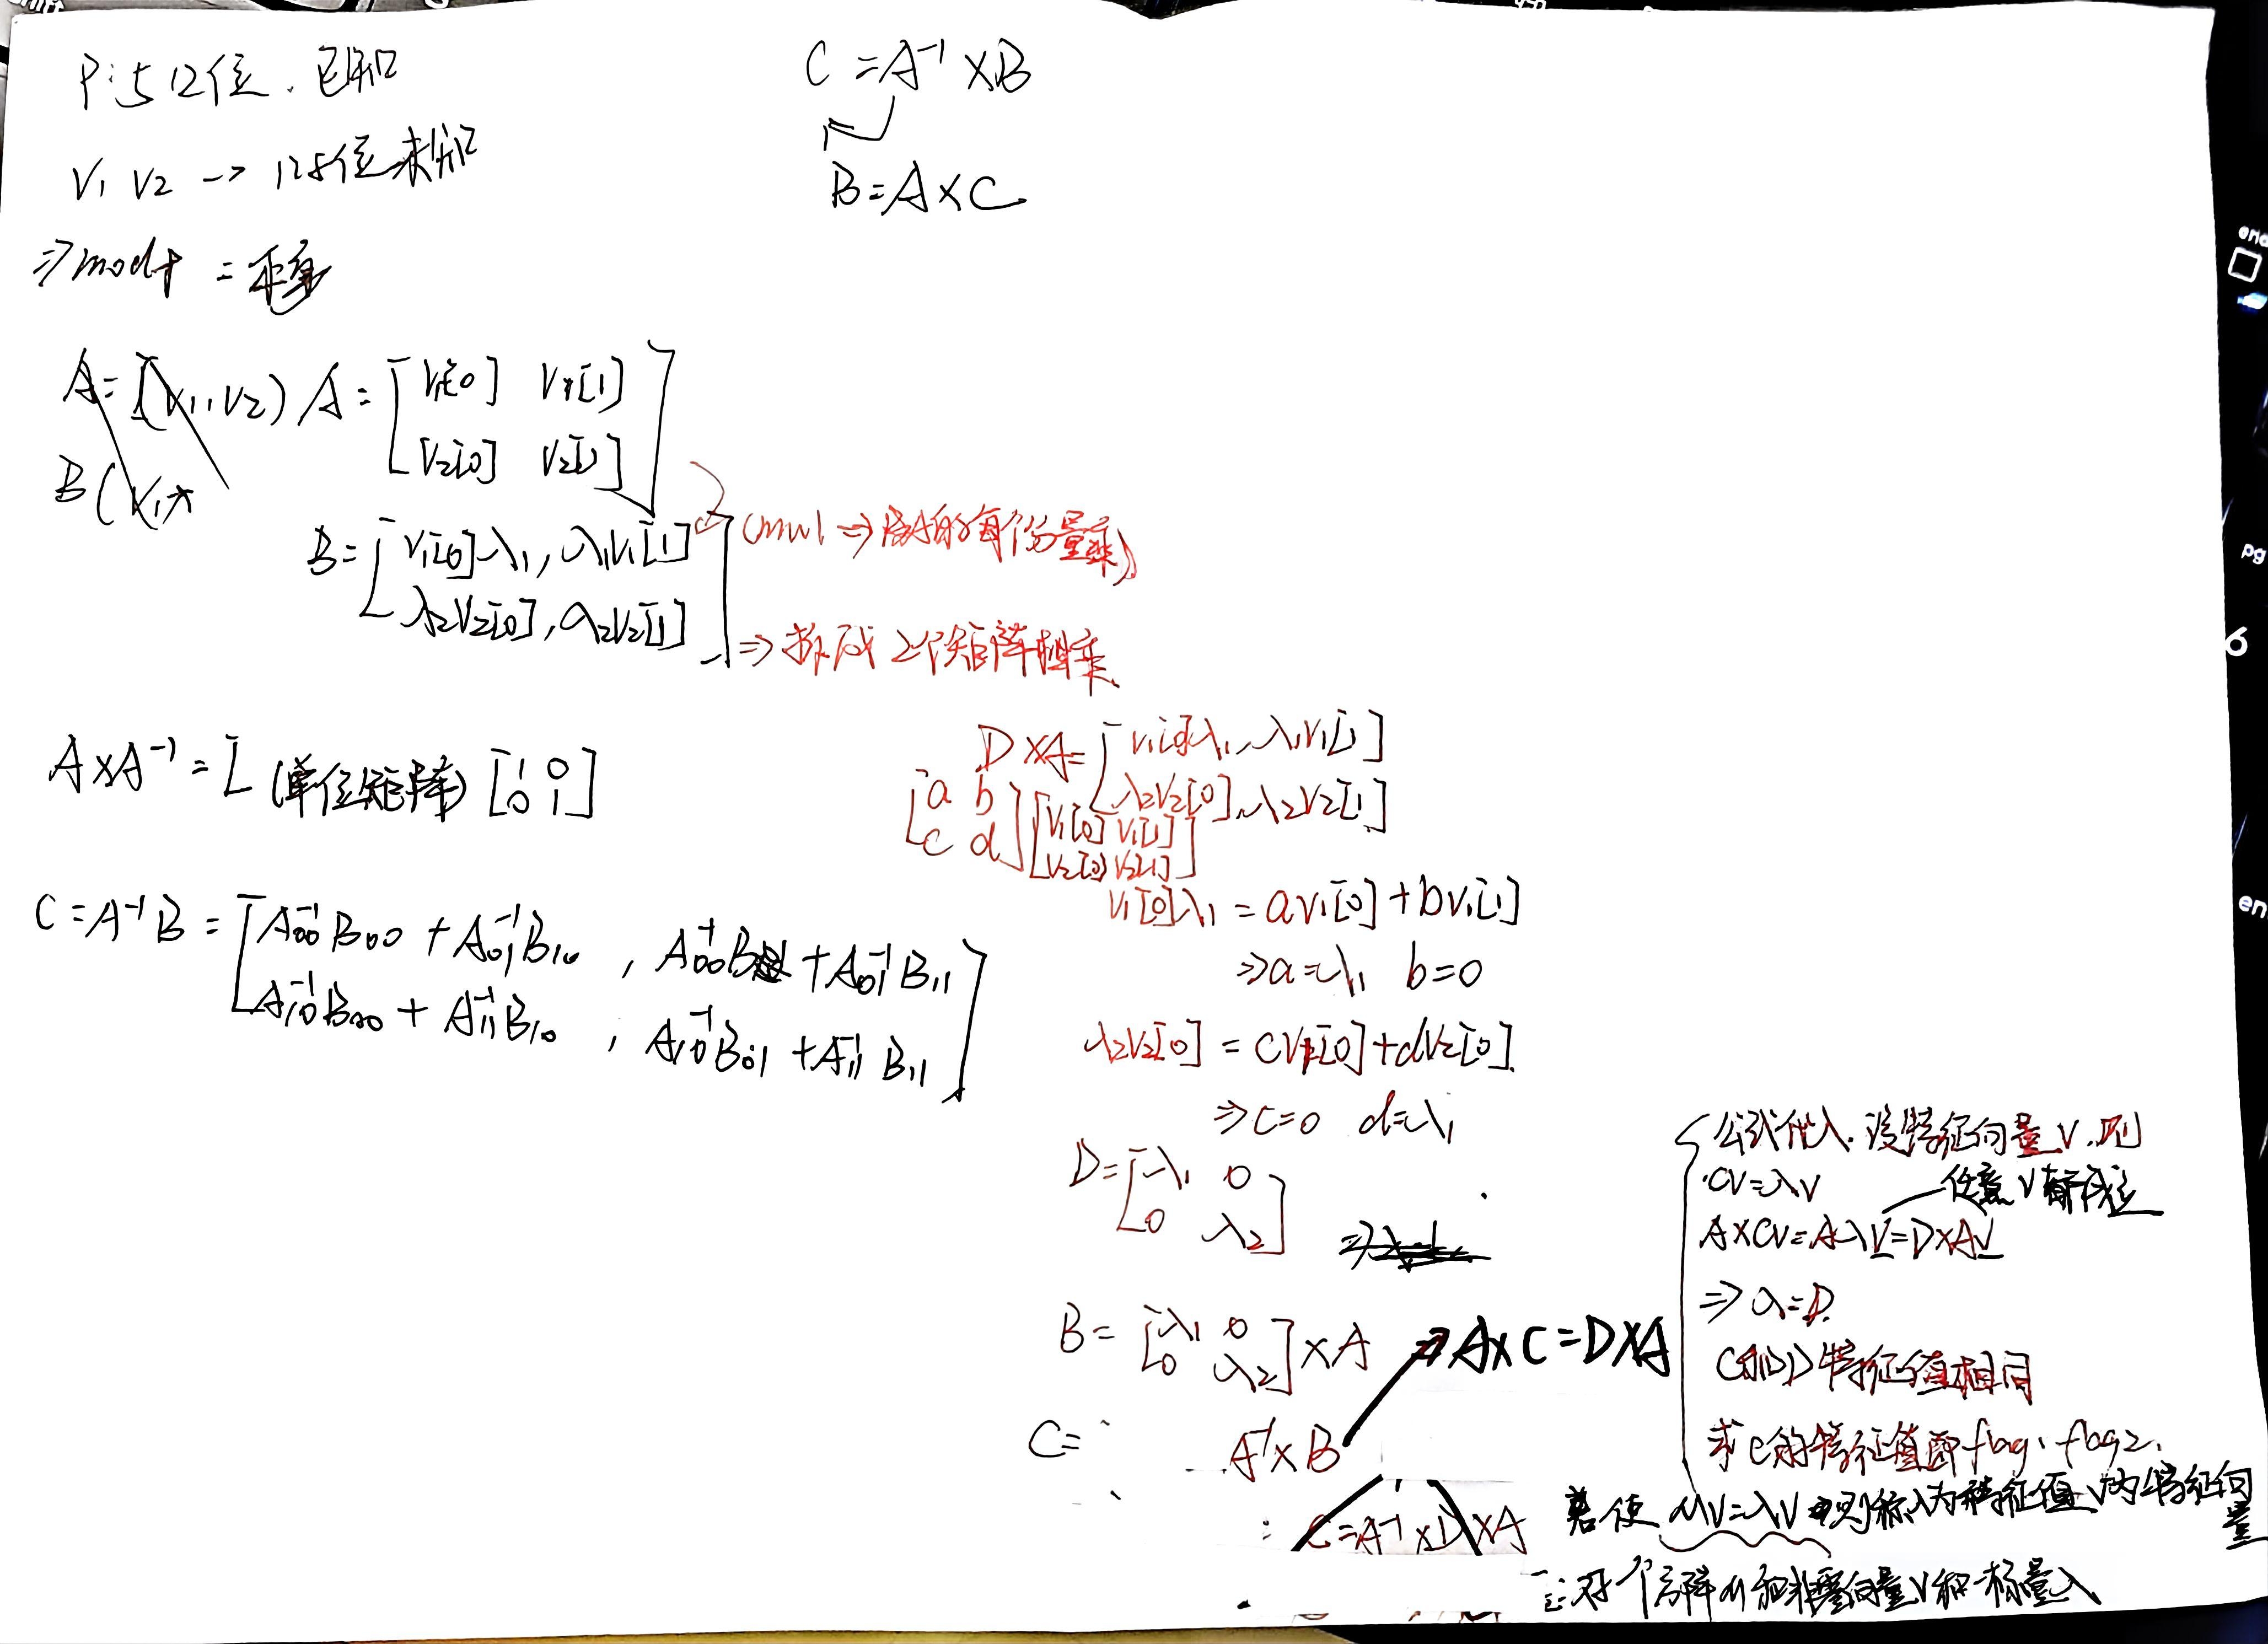 P:512位.已知
V1 V2 → 128位未知
⇒mod p =
C = A⁻¹ × B
B = A × C
A = (V1, V2) A = [V1[0] V1[1]
V2[0] V2[1]]
B (V1
B = [V1[0]λ1, λ1V1[1]
λ2V2[0], λ2V2[1]]
cmul ⇒ 的每个分量乘)
⇒ 拆成2个矩阵相乘.
A×A⁻¹ = I (单位矩阵) [1 0
0 1]
C = A⁻¹B = [A00⁻¹B00 + A01⁻¹B10 , A00⁻¹B + A01⁻¹B11
A10⁻¹B00 + A11⁻¹B10 , A10⁻¹B01 + A11⁻¹B11]
D×A = [V1[0]λ1, λ1V1[1]
λ2V2[0], λ2V2[1]]
[a b
c d] [V1[0] V1[1]
V2[0] V2[1]]
V1[0]λ1 = aV1[0] + bV1[1]
⇒a=λ1 b=0
λ2V2[0] = cV1[0] + dV2[0].
⇒c=0 d=λ1
D = [λ1 0
0 λ2]
B = [λ1 0
0 λ2] × A ⇒ A×C = D×A
C = A⁻¹×B
C = A⁻¹×D×A
公式代入.设特征向量V.则
CV=λV
任意V都成立
A×CV=AλV=D×AV
⇒λ=D.
C和D特征值相同
求C的特征值即flag1 flag2.
若使 MV=λV 则称λ为特征值 V为特征向量
对一个方阵M和非零向量V和一标量λ